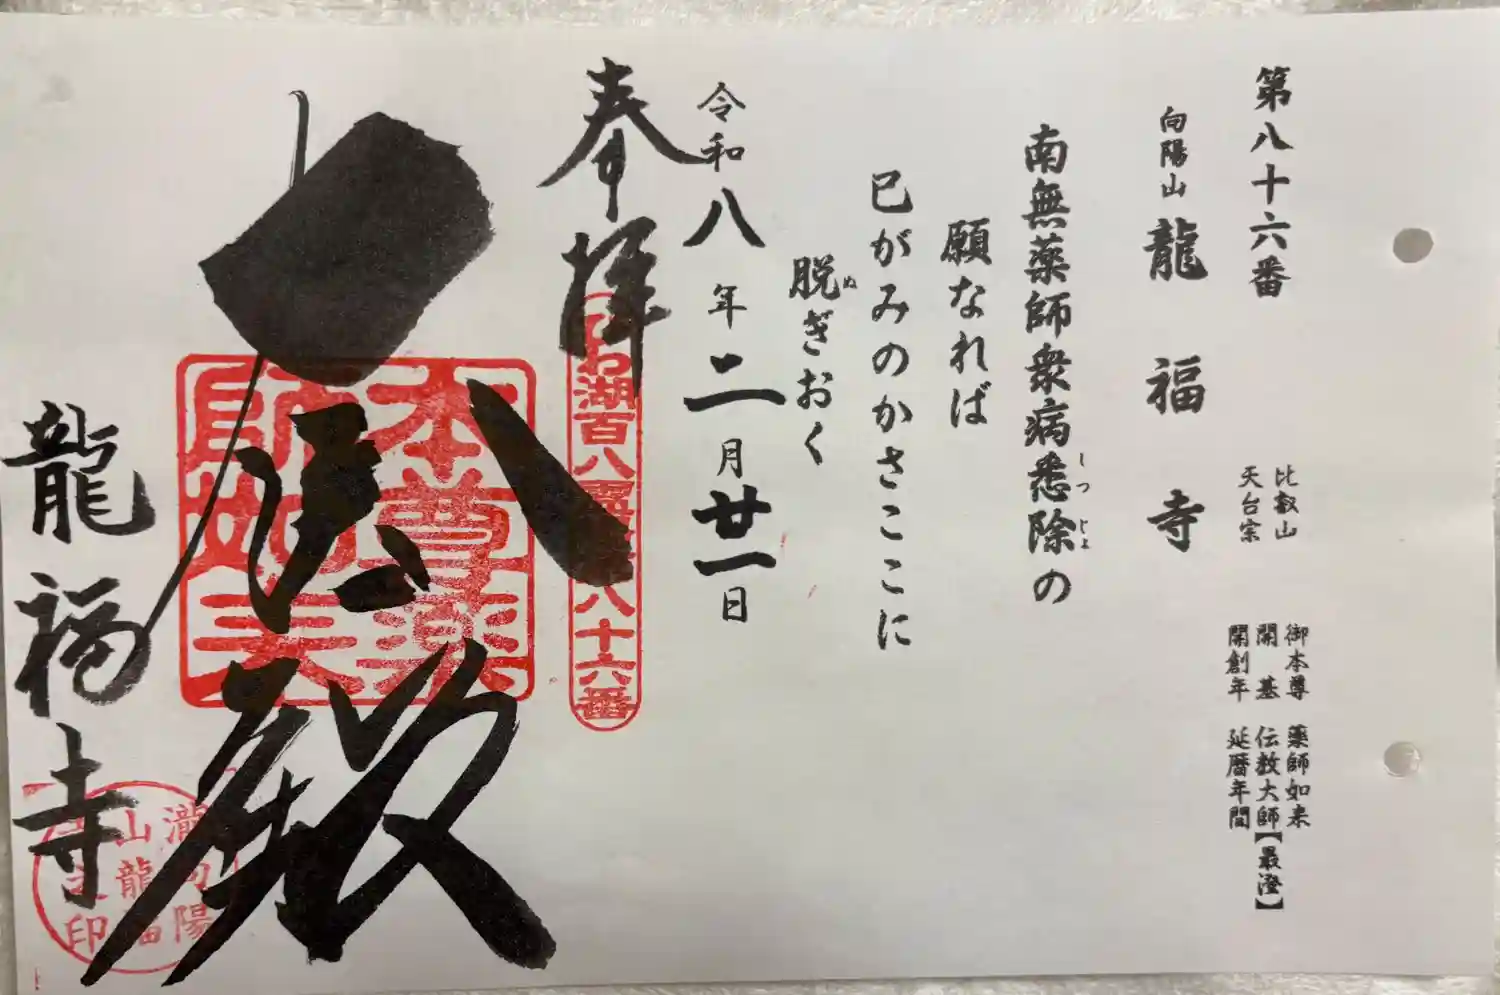 第八十六番
向陽山 龍福寺
比叡山
天台宗
御本尊 薬師如来
開基 伝教大師【最澄】
開創年 延暦年間
南無薬師衆病悉除の
しつじょ
願なれば
巳がみのかさここに
脱ぎおく
ぬ
令和八年二月廿一日
奉拝
わ湖百八
八十六番
本尊薬師如来
龍福寺